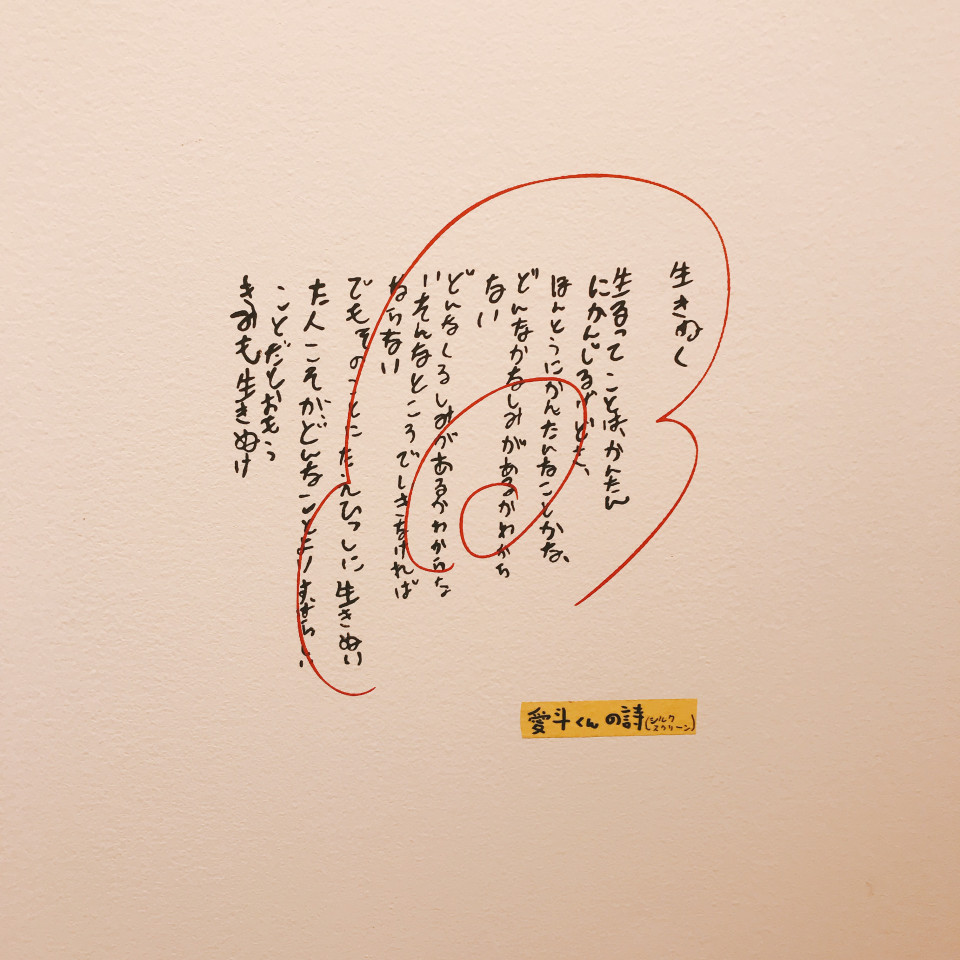 生きぬく
生るってことは、かんたん
にかんじるけどさ、
ほんとうにかんたんなことかな、
どんなかなしみがあるかわから
ない
どんなくるしみがあるかわからな
いそんなところでいきなければ
ならない
でもそのことにたえひっしに生きぬい
た人こそが、どんなことよりすばらしい
ことだとおもう
きみも生きぬけ
愛斗くんの詩(シルク
スクリーン)